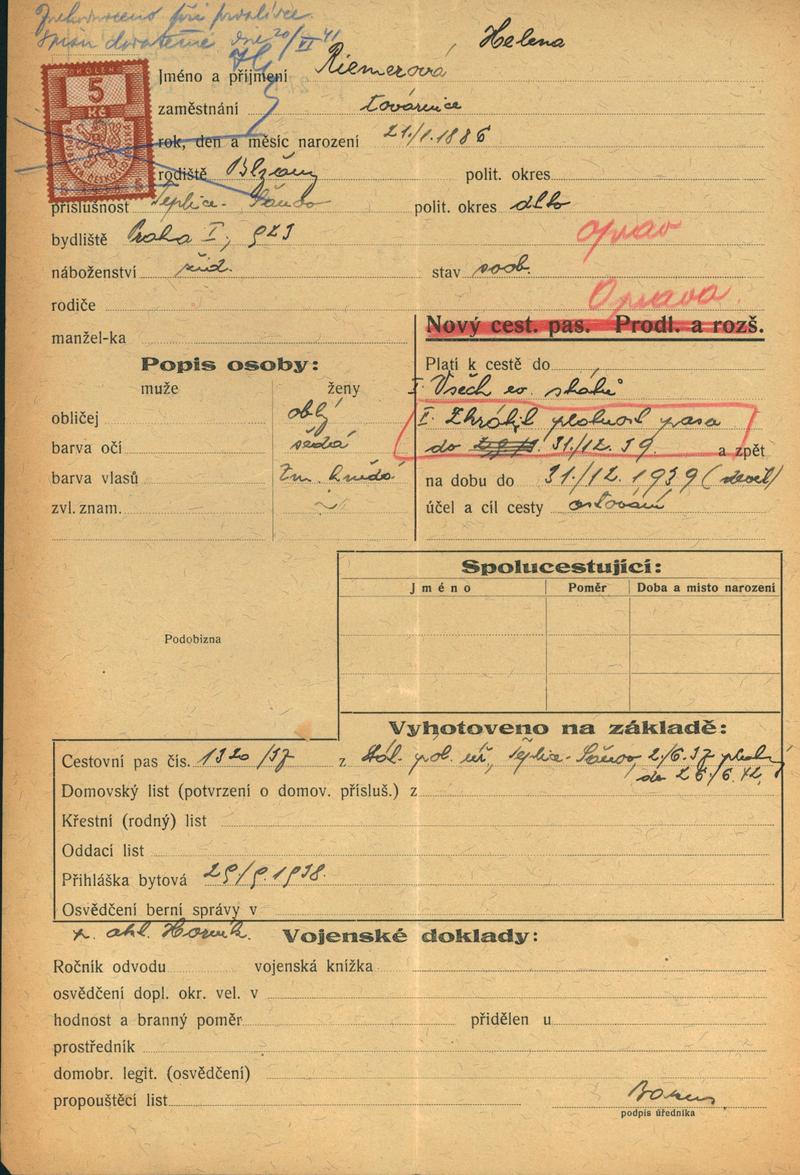 dne 20/VI 41
Helena
KOLEK
5
Kč
REPUBLIKA ČESKOSLOVENSKÁ
Jméno a příjmení Riemerová
zaměstnání
rok, den a měsíc narození 21./1.1886
rodiště Blžany polit. okres
příslušnost Teplice-Šanov polit. okres dtto
bydliště Praha I,
oprav
náboženství žid. stav svob.
Oprava
rodiče
Nový cest. pas. Prodl. a rozš.
manžel-ka
Popis osoby:
Platí k cestě do
muže ženy
I Všech ev. států
obličej obl.
I. Zkrátil platnost pasu
barva očí šedá
do 31./12. 39. a zpět
barva vlasů tm. hnědá
na dobu do 31./12. 1939 (
zvl. znam.
účel a cíl cesty cestování
Spolucestující:
Jméno Poměr Doba a misto narození
Podobizna
Vyhotoveno na základě:
Cestovní pas čís. 1320/37 z Stát. pol. úř. Teplice-Šanov 2/6.37
do 2 6./6.42.
Domovský list (potvrzení o domov. přísluš.) z
Křestní (rodný) list
Oddací list
Přihláška bytová 29/9.1938.
Osvědčení berní správy v
Vojenské doklady:
Ročník odvodu vojenská knížka
osvědčení dopl. okr. vel. v
hodnost a branný poměr přidělen u
prostředník
domobr. legit. (osvědčení)
propouštěcí list
podpis úředníka